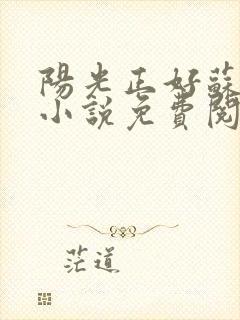 陽光正好蘇
小說免費閱
茫道